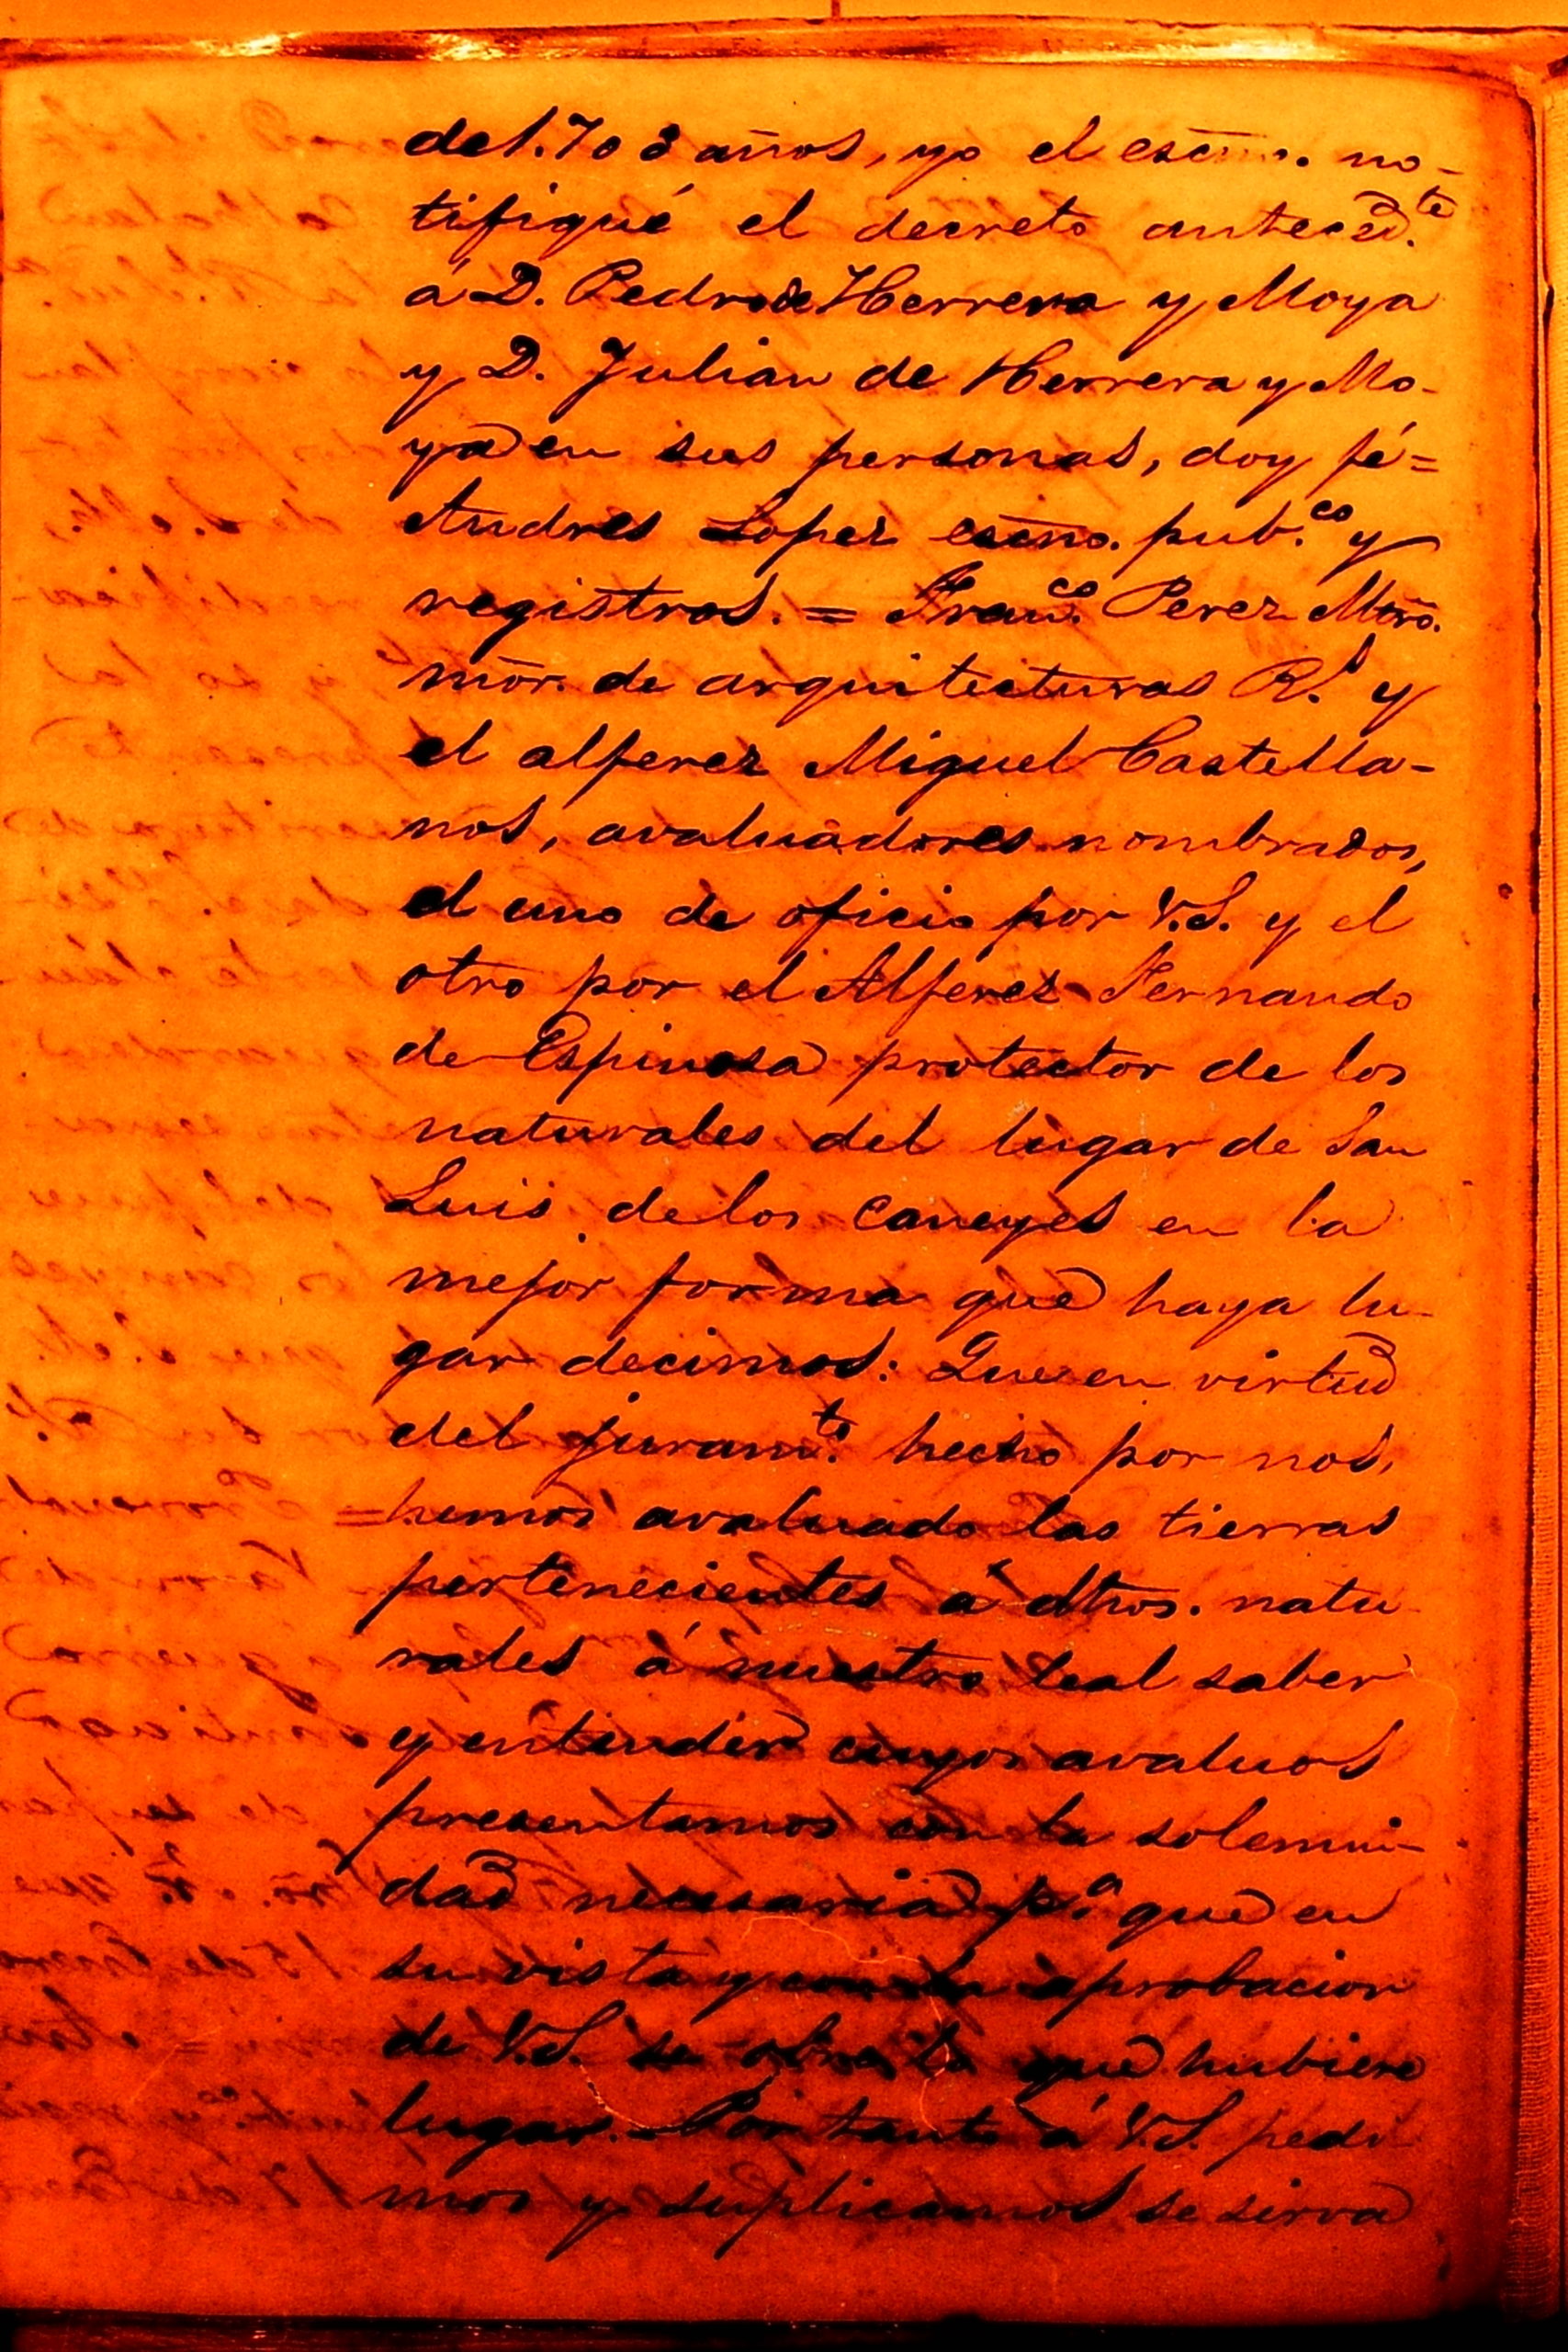 de 1.703 años, yo el escno. no-
tifiqué el decreto anteced.te
á D. Pedro de Herrera y Moya
y D. Julian de Herrera y Mo-
ya en sus personas, doy fé=
Andres Lopez escno. pub.co y
registros. = Fran.co Perez Moro.
mõr. de arquitecturas R.s y
el alferez Miguel Castella-
nos, avaluadores nombrados,
el uno de oficio por V.S. y el
otro por el Alferez Fernando
de Espinosa protector de los
naturales del lugar de San
Luis de los caneyes en la
mejor forma que haya lu-
gar decimos: Que en virtud
del juram.to hecho por nos,
hemos avaluado las tierras
pertenecientes á dhos. natu
rales á nuestro leal saber
y entender cuyos avaluos
presentamos con la solemni-
dad necesaria p.a que en
su vista y con la aprobacion
de V.S. se obre lo que hubiere
lugar. Por tanto á V.S. pedi
mos y suplicamos se sirva